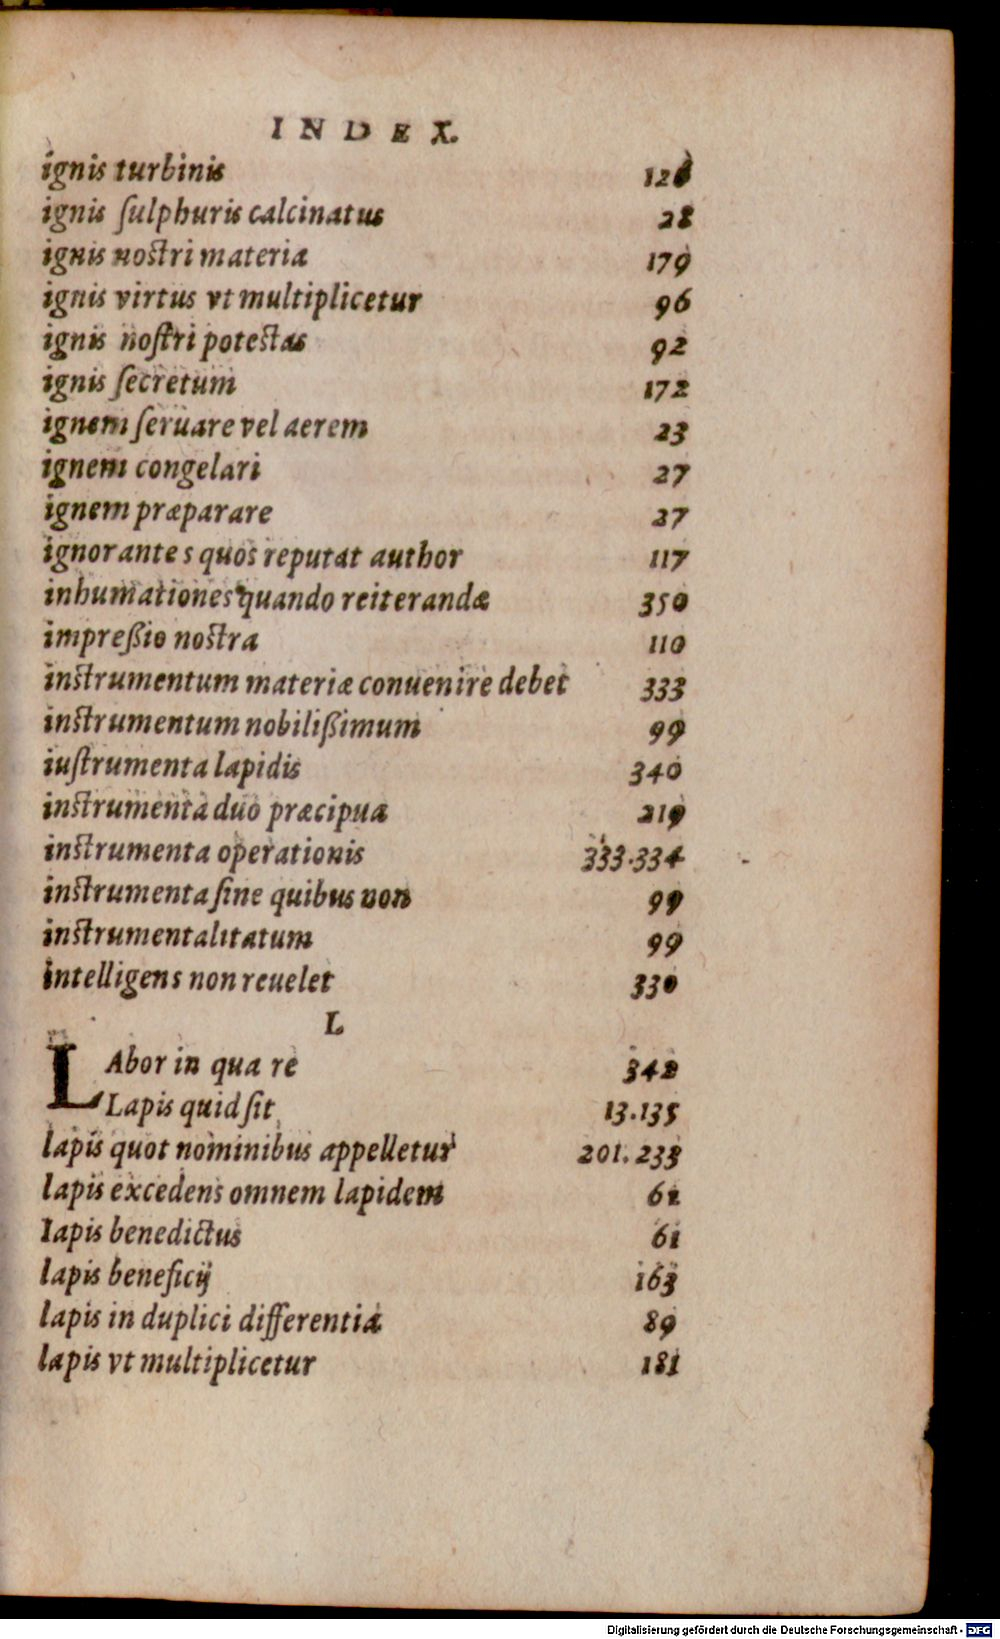 INDEX.
ignis turbinis 126
ignis ſulphuris calcinatus 28
ignis noſtri materia 179
ignis virtus vt multiplicetur 96
ignis noſtri poteſtas 92
ignis ſecretum 172
ignem ſeruare vel aerem 23
ignem congelari 27
ignem præparare 27
ignorantes quos reputat author 117
inhumationes quando reiterandæ 350
impreßio noſtra 110
inſtrumentum materiæ conuenire debet 333
inſtrumentum nobilißimum 99
iuſtrumenta lapidis 340
inſtrumenta duo præcipua 219
inſtrumenta operationis 333.334
inſtrumenta ſine quibus non 99
inſtrumentalitatum 99
intelligens non reuelet 330
L
LAbor in qua re 342
Lapis quid ſit 13.135
lapis quot nominibus appelletur 201.233
lapis excedens omnem lapidem 61
lapis benedictus 61
lapis beneficij 163
lapis in duplici differentia 89
lapis vt multiplicetur 181
Digitalisierung gefördert durch die Deutsche Forschungsgemeinschaft - DFG